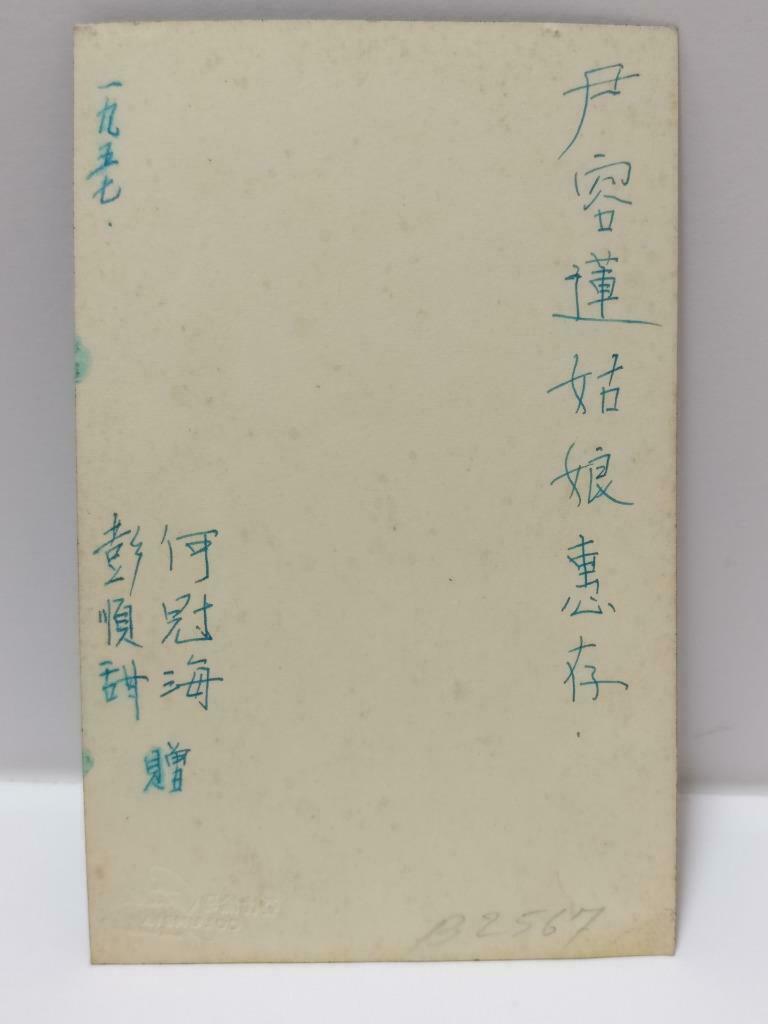 尹容蓮姑娘惠存.
何冠海
彭順甜
贈
一九五七.
B2567